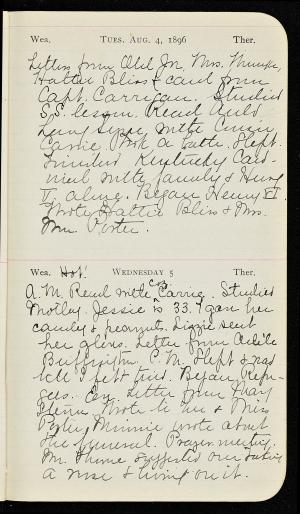 Wea. TUES. AUG. 4, 1896 Ther.
Letters from Obed Jr. Mrs.
Hattie Bliss & card from
Capt. Carrigan. Studied
S.S. lesson. Read Auld
Lang Syne with Cousin
Carrie. Took a bath. Slept.
Finished Kentucky Card-
inal with family & Henry
V alone. Began Henry VI.
Wrote Hattie Bliss & Mrs.
Wm. Porter.
Wea. Hot! WEDNESDAY 5 Ther.
A.M. Read with C. Carrie. Studied
Motley. Jessie is 33. I gave her
candy & peanuts. Lizzie sent
her glass. Letter from Adele
Buffington. P.M. Slept & read
till I felt tired. Began Refu-
gees. Eve. Letter from Mary
Glenn. Wrote to her & Miss
Porter. Minnie wrote about
the funeral. Prayer meeting.
Mr. suggested our taking
a rose & living on it.